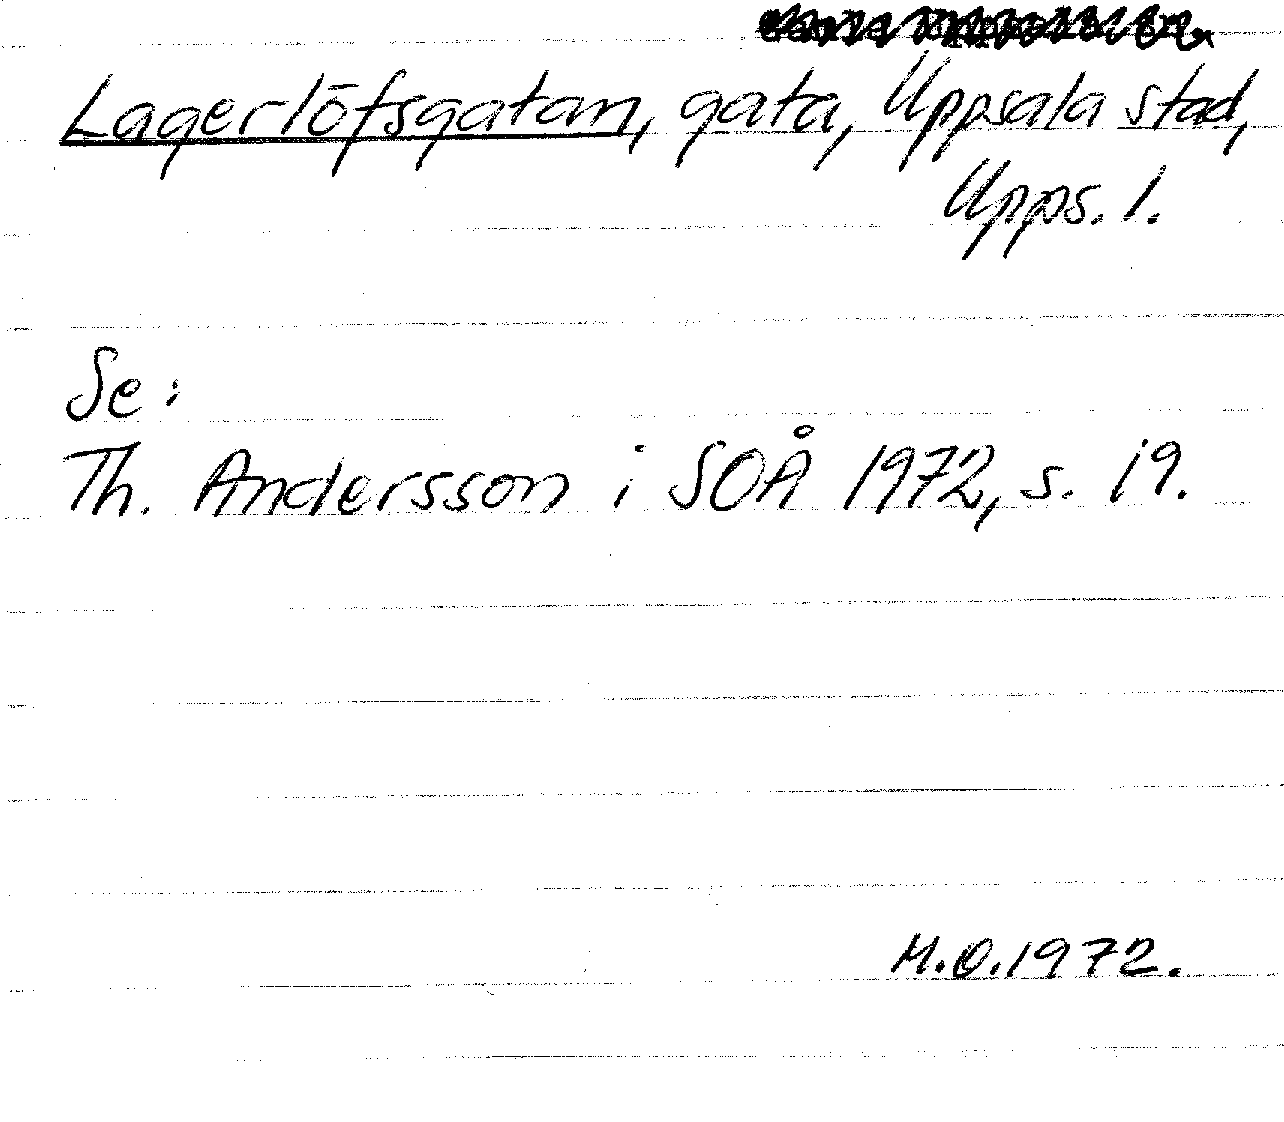 Lagerlöfsgatan, gata, Uppsala stad,
Upps. l.
Se:
Th. Andersson i SOÅ 1972, s. 19.
M.O. 1972.